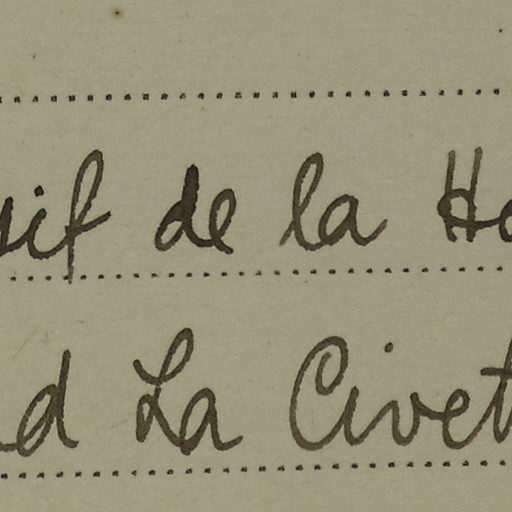 sif de la Ho
d La Civet